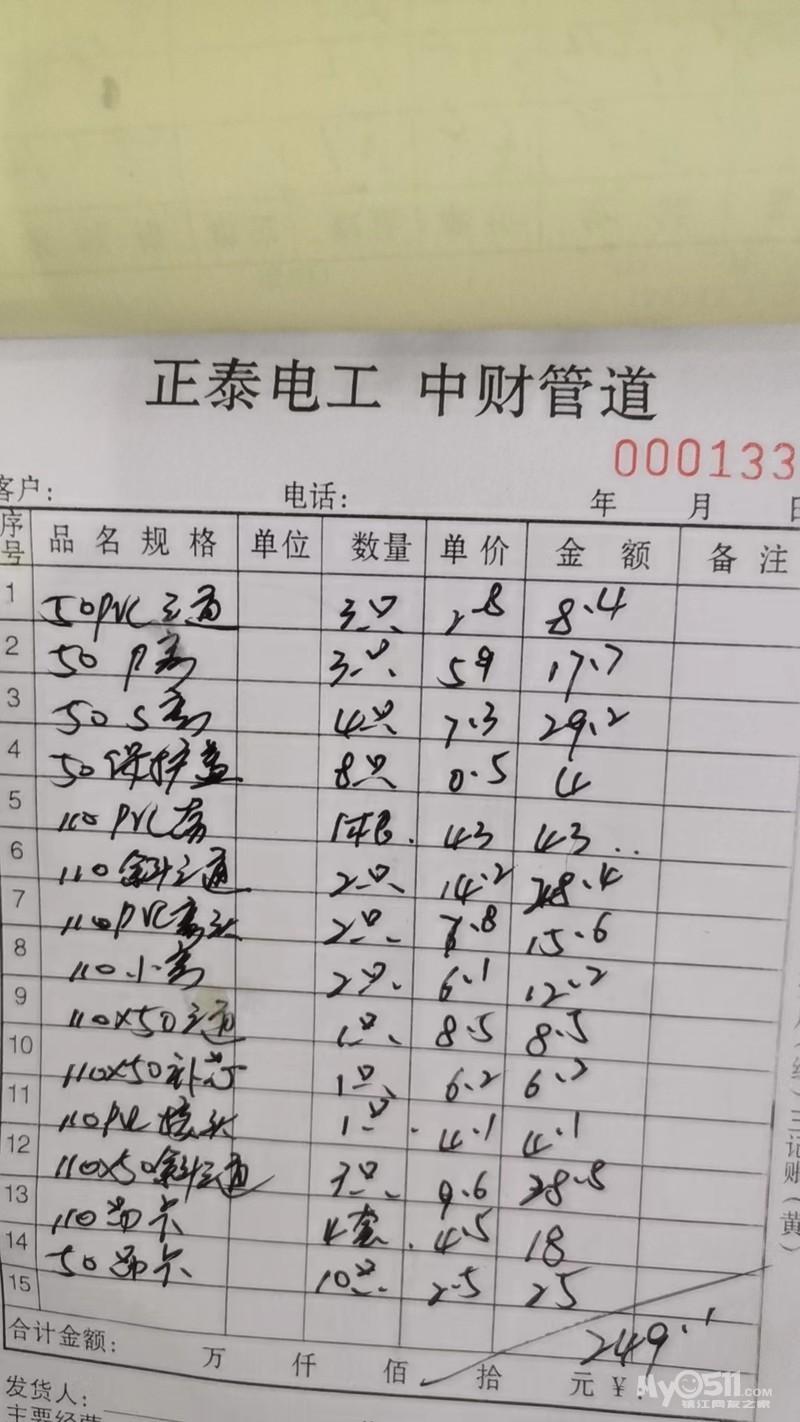 正泰电工 中财管道
000133
客户: 电话: 年 月 日
序号 品名规格 单位 数量 单价 金额 备注
1 50PVC三通 3只 2.8 8.4
2 50 P弯 3只 59 17.7
3 50 S弯 4只 7.3 29.2
4 50保护盖 8只 0.5 4
5 110 PVC 1根. 43 43..
6 110斜三通 2只 14.2 28.4
7 110PVC弯头 2只 7.8 15.6
8 110 小弯 2只. 6.1 12.2
9 110×50三通 1只 8.5 8.5
10 110×50补芯 1只 6.2 6.2
11 110PVC接头 1只. 4.1 4.1
12 110×50斜三通 3只 9.6 28.8
13 110吊卡 4套. 4.5 18
14 50吊卡 10只 2.5 25
15
合计金额: 万 仟 佰 拾 元 ¥: 249.1
发货人:
主要经营
三记账(黄)
My0511.com
镇江网友之家